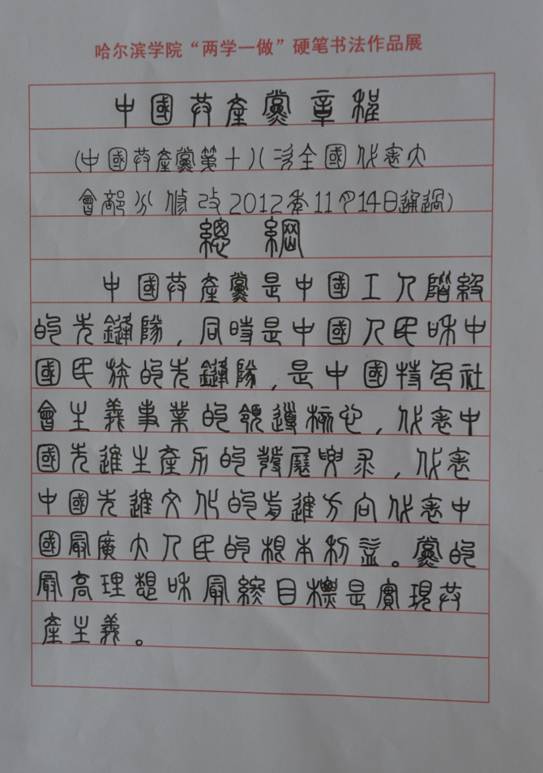 哈尔滨学院“两学一做”硬笔书法作品展
中國共產黨章程
(中國共產黨第十八次全國代表大
會部分修改2012年11月14日通過)
總綱
中國共產黨是中國工人階級
的先鋒隊,同時是中國人民和中
國民族的先鋒隊,是中國特色社
會主義事業的領導核心,代表中
國先進生產力的發展要求,代表
中國先進文化的前進方向代表中
國最廣大人民的根本利益。黨的
最高理想和最終目標是實現共
產主義。